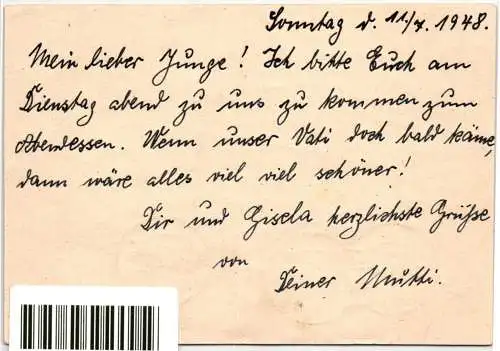 Sonntag d. 11/7. 1948.
Mein lieber Junge! Ich bitte Euch am
Dienstag abend zu uns zu kommen zum
Abendessen. Wenn unser Vati doch bald käme,
dann wäre alles viel viel schöner!
Dir und Gisela herzlichste Grüsse
von
Deiner Mutti.